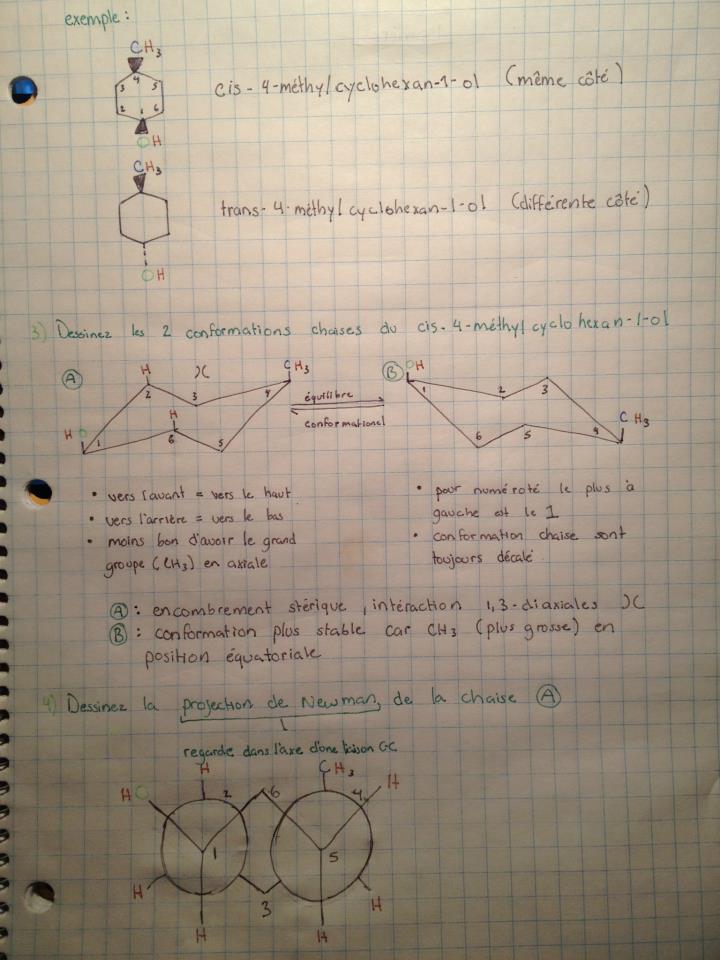 exemple :
CH3
3 4 5
2 1 6
OH
cis-4-méthylcyclohexan-1-ol (même côté)
CH3
OH
trans-4-méthylcyclohexan-1-ol (différente côté)
3) Dessinez les 2 conformations chaises du cis-4-méthylcyclohexan-1-ol
A
H
CH3
2 3 4
H
HO 1 6 5
équilibre
conformationel
B
OH
1 2 3
6 5 4
CH3
• vers l'avant = vers le haut
• vers l'arrière = vers le bas
• moins bon d'avoir le grand
groupe (CH3) en axiale
• pour numéroté le plus à
gauche est le 1
• conformation chaise sont
toujours décalé
A : encombrement stérique, intéraction 1,3-diaxiales
B : conformation plus stable car CH3 (plus grosse) en
position équatoriale
4) Dessinez la projection de Newman, de la chaise A
regarde dans l'axe d'une liaison CC
H CH3
HO 2 6 4 H
1 5
H 3 H
H H